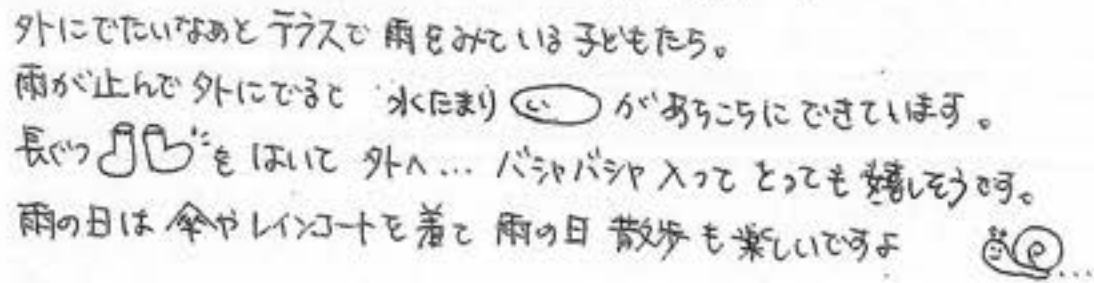 外にでたいなぁと テラスで 雨をみている子どもたち。
雨が止んで外にでると 水たまり があちこちにできています。
長ぐつ をはいて 外へ… バシャバシャ入って とっても嬉しそうです。
雨の日は 傘やレインコートを着て 雨の日 散歩も楽しいですよ